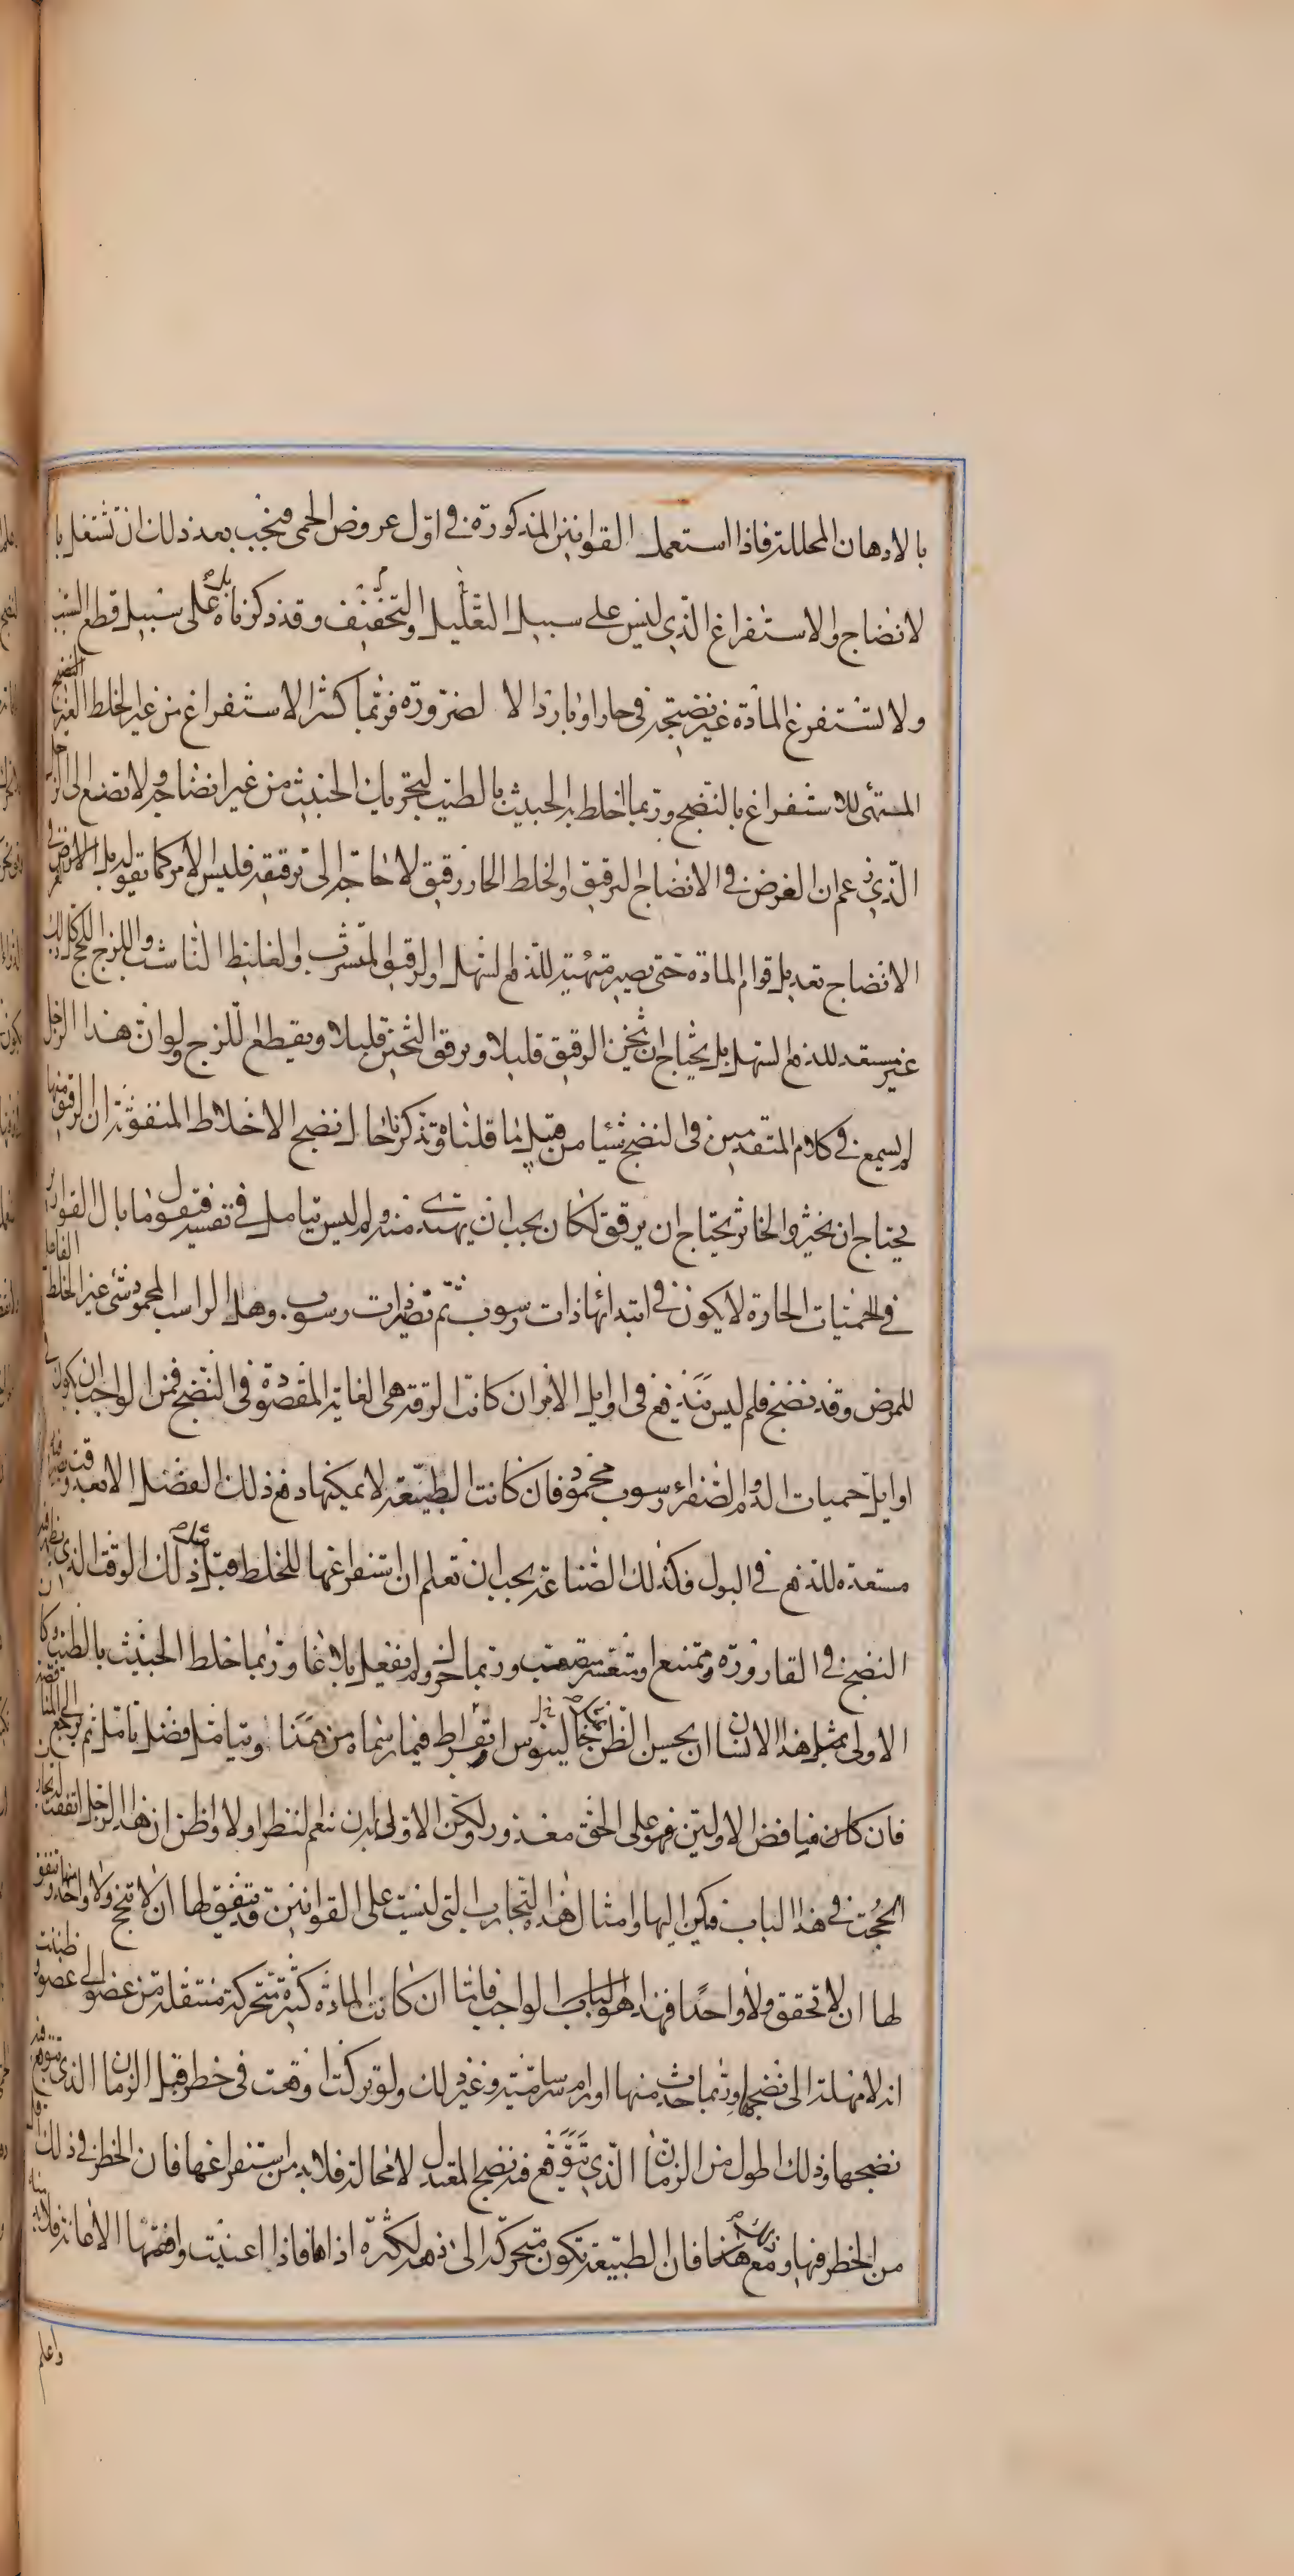 بالادهان المحللة فاذا استعمل القوانين المذكورة في اول عروض الحمى فيجب بعد ذلك ان تشتغل با
لانضاج والاستفراغ الذي ليس على سبيل التقليل والتخفيف وقد ذكرناه على سبيل قطع السبب
ولا تستفرغ المادة غير نضيجة في حار او بارد الا لضرورة فربما كثر الاستفراغ من غير الخلط الغير
المتهئ للاستفراغ بالنضج وربما خلط الخبيث بالطيب لتحريك الخبيث من غير انضاج ولا تصغ الى الرجل
الذي زعم ان الغرض في الانضاج الترقيق والخلط الحار رقيق لا حاجة الى ترقيقه فليس الامر كما يقوله بل الغرض في
الانضاج تعديل قوام المادة حتى يصير متهيئة للدفع السهل والرقيق المتشرب والغليظ الناشب واللزج اللحج كل ذلك
غير مستعد للدفع السهل بل يحتاج ان يخثن الرقيق قليلا ويرقق الثخين قليلا ويقطع اللزج ولو ان هذا الرجل
لم يسمع في كلام المتقدمين في النضج شيئا من قبيل ما قلناه وتذكرنا حال نضج الاخلاط المنفوثة ان الرقيق منها
يحتاج ان يخثر والخاثر يحتاج ان يرقق لكان يجب ان يهتدي منه ولم ليس يتامل في نفسه فيقول ما بال القوارير
في الحميات الحارة لا يكون في ابتدائها ذات رسوب ثم تصير ذات رسوب وهل الراسب المحمود شئ غير الخلط الفاعل
للمرض وقد نضج فلم ليس يندفع في اوايل الامر ان كانت الرقة هي الغاية المقصودة في النضج فمن الواجب ان يكون في
اوايل حميات الدم والصفراء رسوب محمود فان كانت الطبيعة لا يمكنها دفع ذلك الفضل الا بعد وقت
مستعدة للدفع في البول فكذلك الصناعة يجب ان تعلم ان استفراغها للخلط قبل ذلك الوقت الذي
النضج في القارورة ممتنع او متعسر متعب وربما حرك ولم يفعل بلاغا وربما خلط الخبيث بالطيب وكان
الاولى بمثل هذا الانسان ان يحسن الظن بجالينوس او بقراط فيما رسماه من هذا ويتامل فضل تامل ثم يرجع
فان كان مناقض الاولين فهو على الحق معذور ولكن الاولى ان ينعم النظر اولا واظن ان هذا الرجل اتفقت له تجارب
انجحت في هذا الباب فركن اليها وامثال هذه التجارب التي ليست على القوانين قد يتفق لها ان لا تنجح ولا واحد منها ويتفق
لها ان لا تخفق ولا واحدا فهذا هو الباب الواجب فاما ان كانت المادة كثيرة متحركة منتقلة من عضو الى عضو ظننت
انه لا مهلة الى نضجها وربما حدث منها اورام سرسامية وغير ذلك ولو تركت اوقعت في خطر قبل الزمان الذي يتوقع فيه
نضجها وذلك اطول من الزمان الذي يتوقع فيه نضج المعتدل لا محالة فلا بد من استفراغها فان الخطر في ذلك اقل
من الخطر فيها ومع هذا فان الطبيعة تكون متحركة الى دفعه لكثرة اذاها فاذا اعينت وافقها الاعانة فلا
واعلم